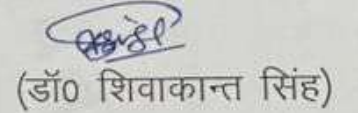 (डॉ0 शिवाकान्त सिंह)